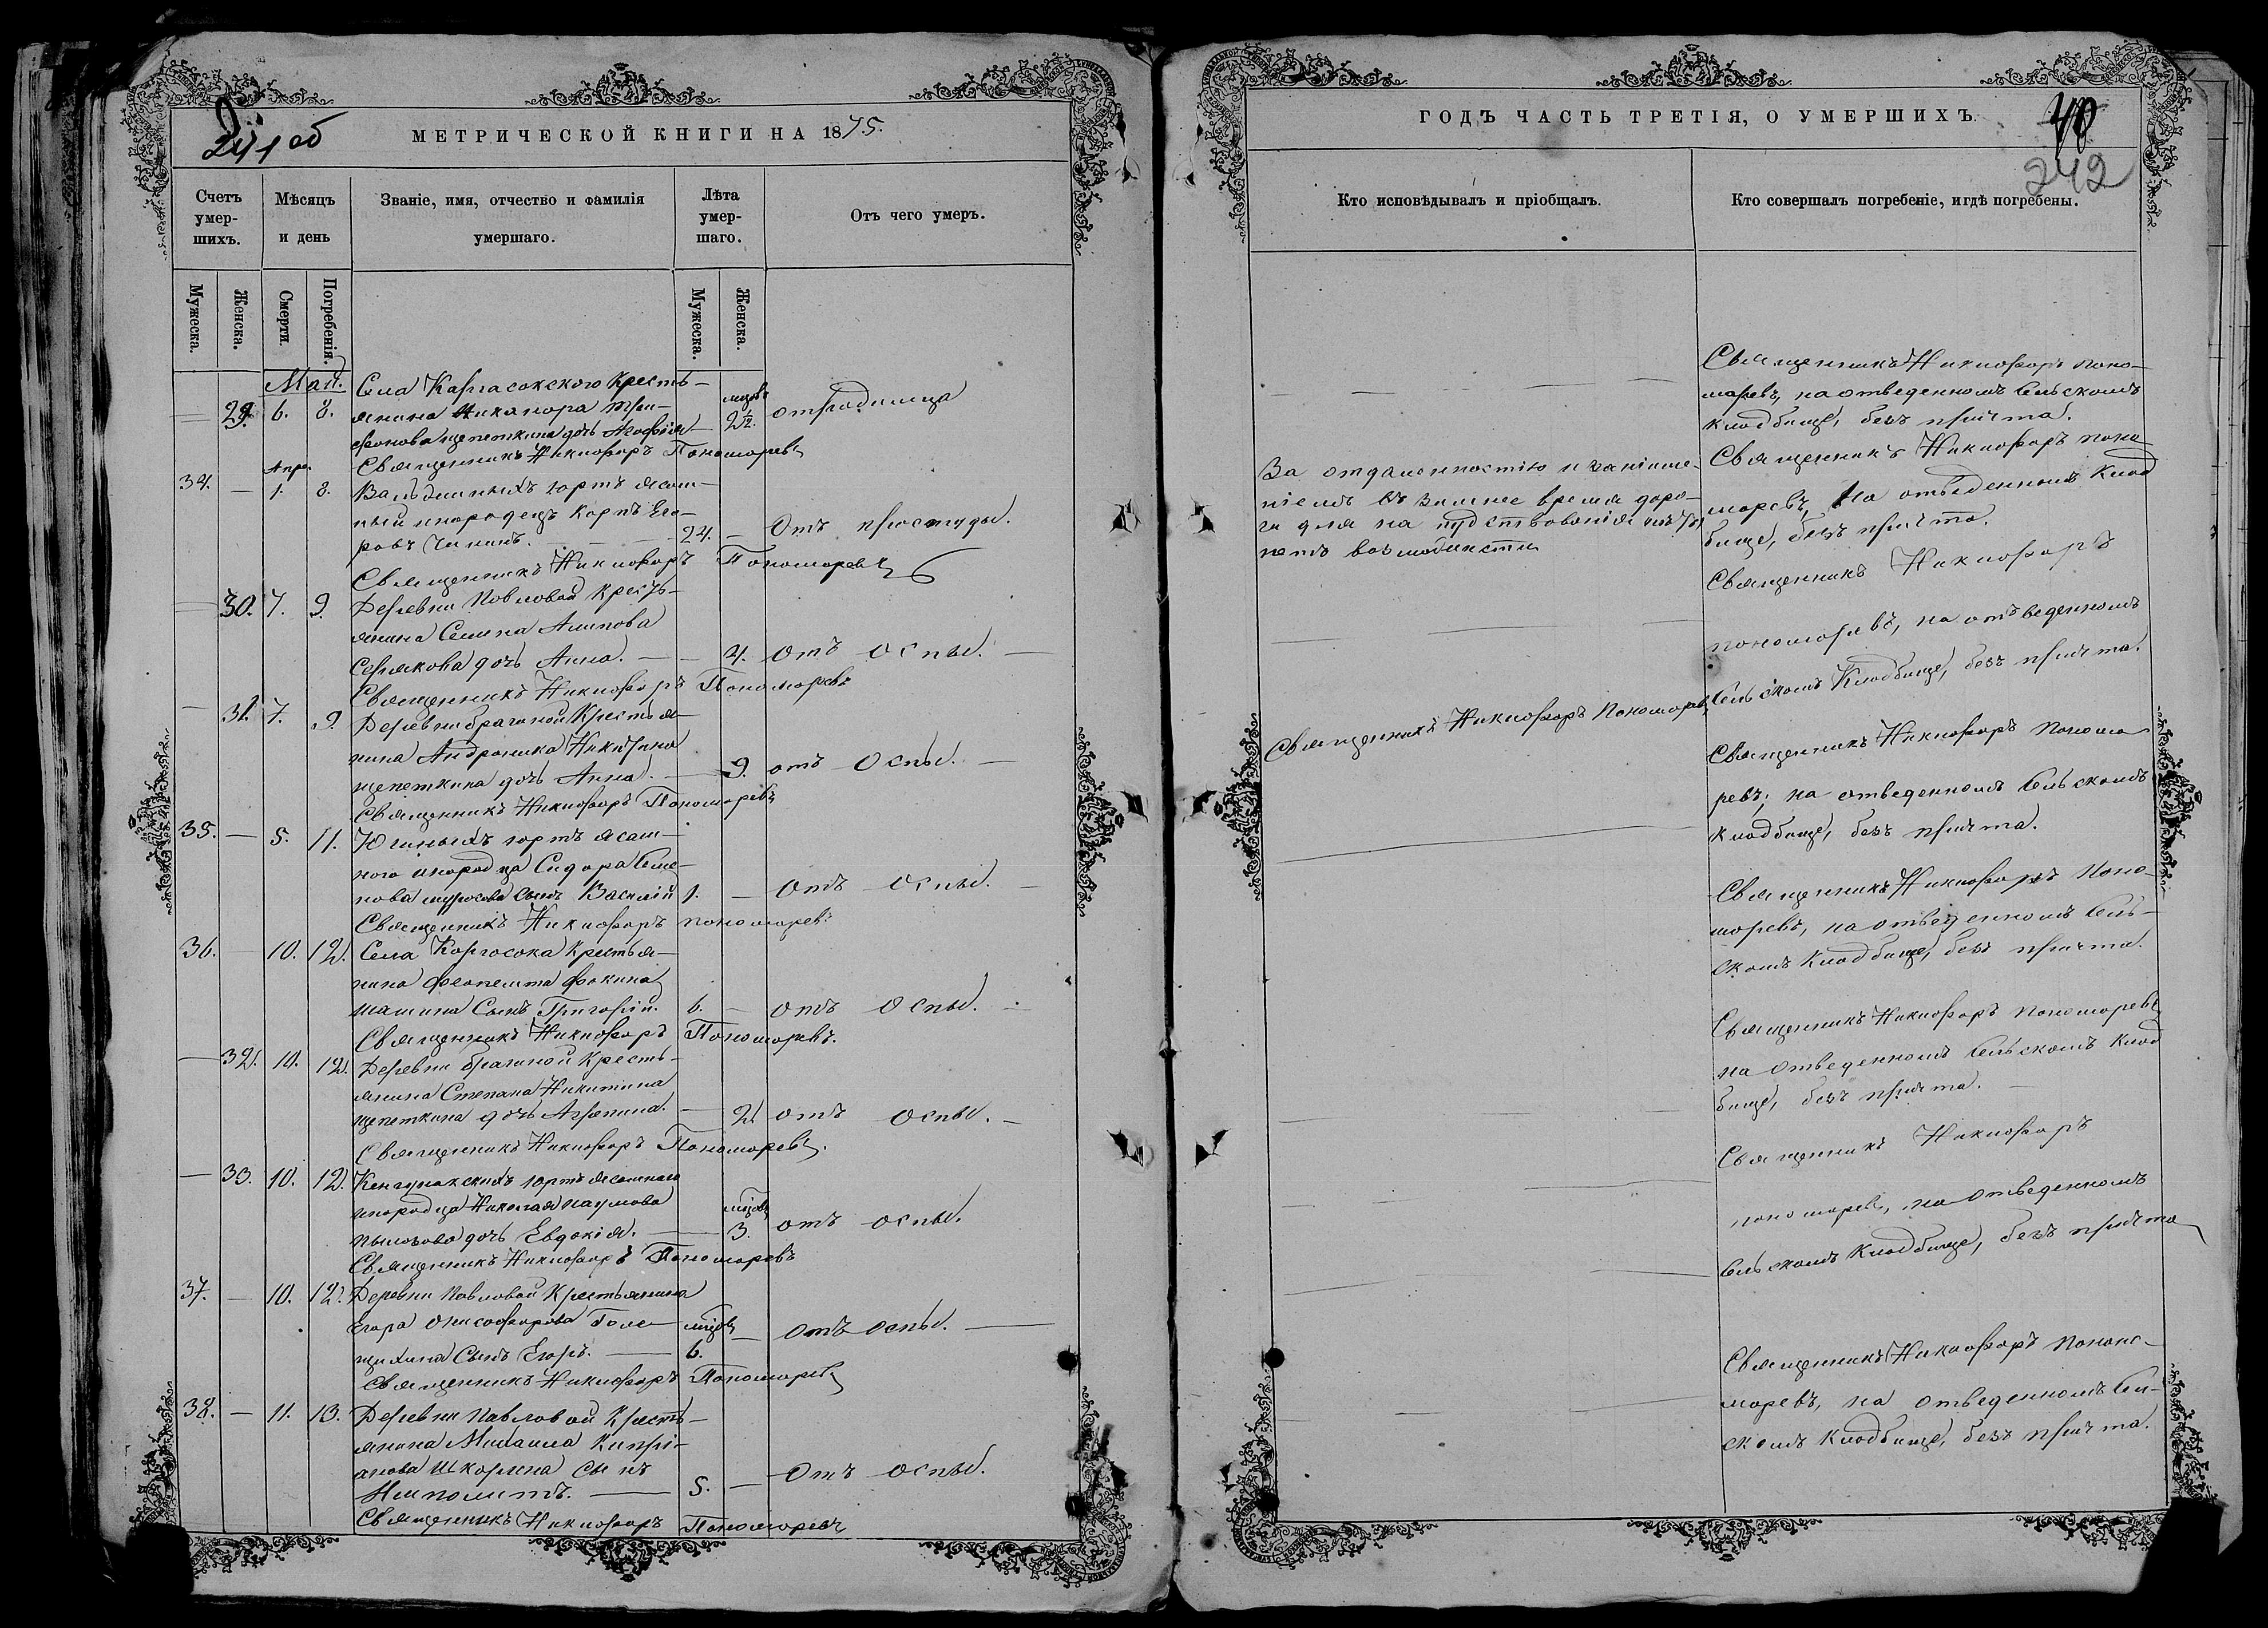 241 об
МЕТРИЧЕСКОЙ КНИГИ НА 1875.
Счетъ умер-шихъ.
Мѣсяцъ и день
Званіе, имя, отчество и фамилія умершаго.
Лѣта умер-шаго.
Отъ чего умеръ.
Мужеска.
Женска.
Смерти.
Погребенія.
Мужеска.
Женска.
Май.
Села Каргасокского Кресть-
29. 6. 8. янина Никанора Три-
фонова щепеткина дочь Агафія 2½. отродимца
Священникъ Никифоръ Пономоревъ
Апре.
34. — 1. 8. юртъ ясаш-
ный инородецъ Карпъ Его-
ровъ Чининъ. 24. — Отъ простуды.
Священникъ Никифоръ Пономоревъ
— 30. 7. 9. Деревни Повловой Кресть-
янина Семена Алипова
Серякова дочь Анна. — — 4. отъ оспы. —
Священникъ Никифоръ Пономоревъ
— 31. 7. 9. Деревни брагиной Крестья-
нина Андроника Никитина
щепеткина дочь Анна. — 9. отъ Оспы. —
Священникъ Никифоръ Пономоревъ
35. — 5. 11. Югиныхъ юртъ ясаш-
ного инородца Сидора Семе-
нова сынъ Василій 1. — отъ Оспы. —
Священникъ Никифоръ пономоревъ
36. — 10. 12. Села Коргосока Крестья-
нина Феопемта Фокина
Мамина Сынъ Григорій. 6. — отъ Оспы. —
Священникъ Никифоръ Пономоревъ.
— 32. 10. 12. Деревни брагиной Кресть-
янина Степана Никитина
щепеткина дочь Агрепина. — 2. отъ оспы. —
Священникъ Никифоръ Пономоревъ.
— 33. 10. 12. юртъ ясашнаго
инородца Николая наумова
дочь Евдокія. — 3. отъ оспы.
Священникъ Никифоръ Пономоревъ
37. — 10. 12. Деревни Повловой Крестьянина
Егора Онисофорова Голе-
щихина Сынъ Егоръ. — 6. — отъ оспы. —
Священникъ Никифоръ Пономоревъ
38. — 11. 13. Деревни Павловой Кресть-
янина Михаила Кипрі-
анова Шкорина Сынъ
Ипполитъ. — 5. — Отъ оспы.
Священникъ Никифоръ Пономоревъ
ГОДЪ ЧАСТЬ ТРЕТІЯ, О УМЕРШИХЪ.
40
242
Кто исповѣдывалъ и пріобщалъ.
Кто совершалъ погребеніе, и гдѣ погребены.
Священникъ Никифоръ поно-
моревъ, на отведенномъ Сельскомъ
Кладбище, безъ причта.
За отдаленностію и
ніемъ въ Зимнее время доро-
ги для на пудствованія
нетъ возможности
Священникъ Никифоръ поно
моревъ, На отведенномъ Клад
бище, безъ причта.
Священникъ Никифоръ
пономоревъ, на отъведенномъ
Сельскомъ Кладбище, безъ причта.
Священникъ Никифоръ Пономоревъ
Священникъ Никифоръ Пономо
ревъ, на отведенномъ Сельскомъ
Кладбище, безъ причта.
Священникъ Никифоръ Поно-
моревъ, на отведенномъ Сель-
скомъ Кладбище, безъ причта.
Священникъ Никифоръ Пономоревъ
на Отведенномъ Сельскомъ Клад
бище, безъ причта. —
Священникъ Никифоръ
пономоревъ, на Отведенномъ
Сельскомъ Кладбище, безъ причта
Священникъ Никифоръ Пононо-
моревъ, на отведенномъ Сел-
скомъ Кладбище, безъ причта.